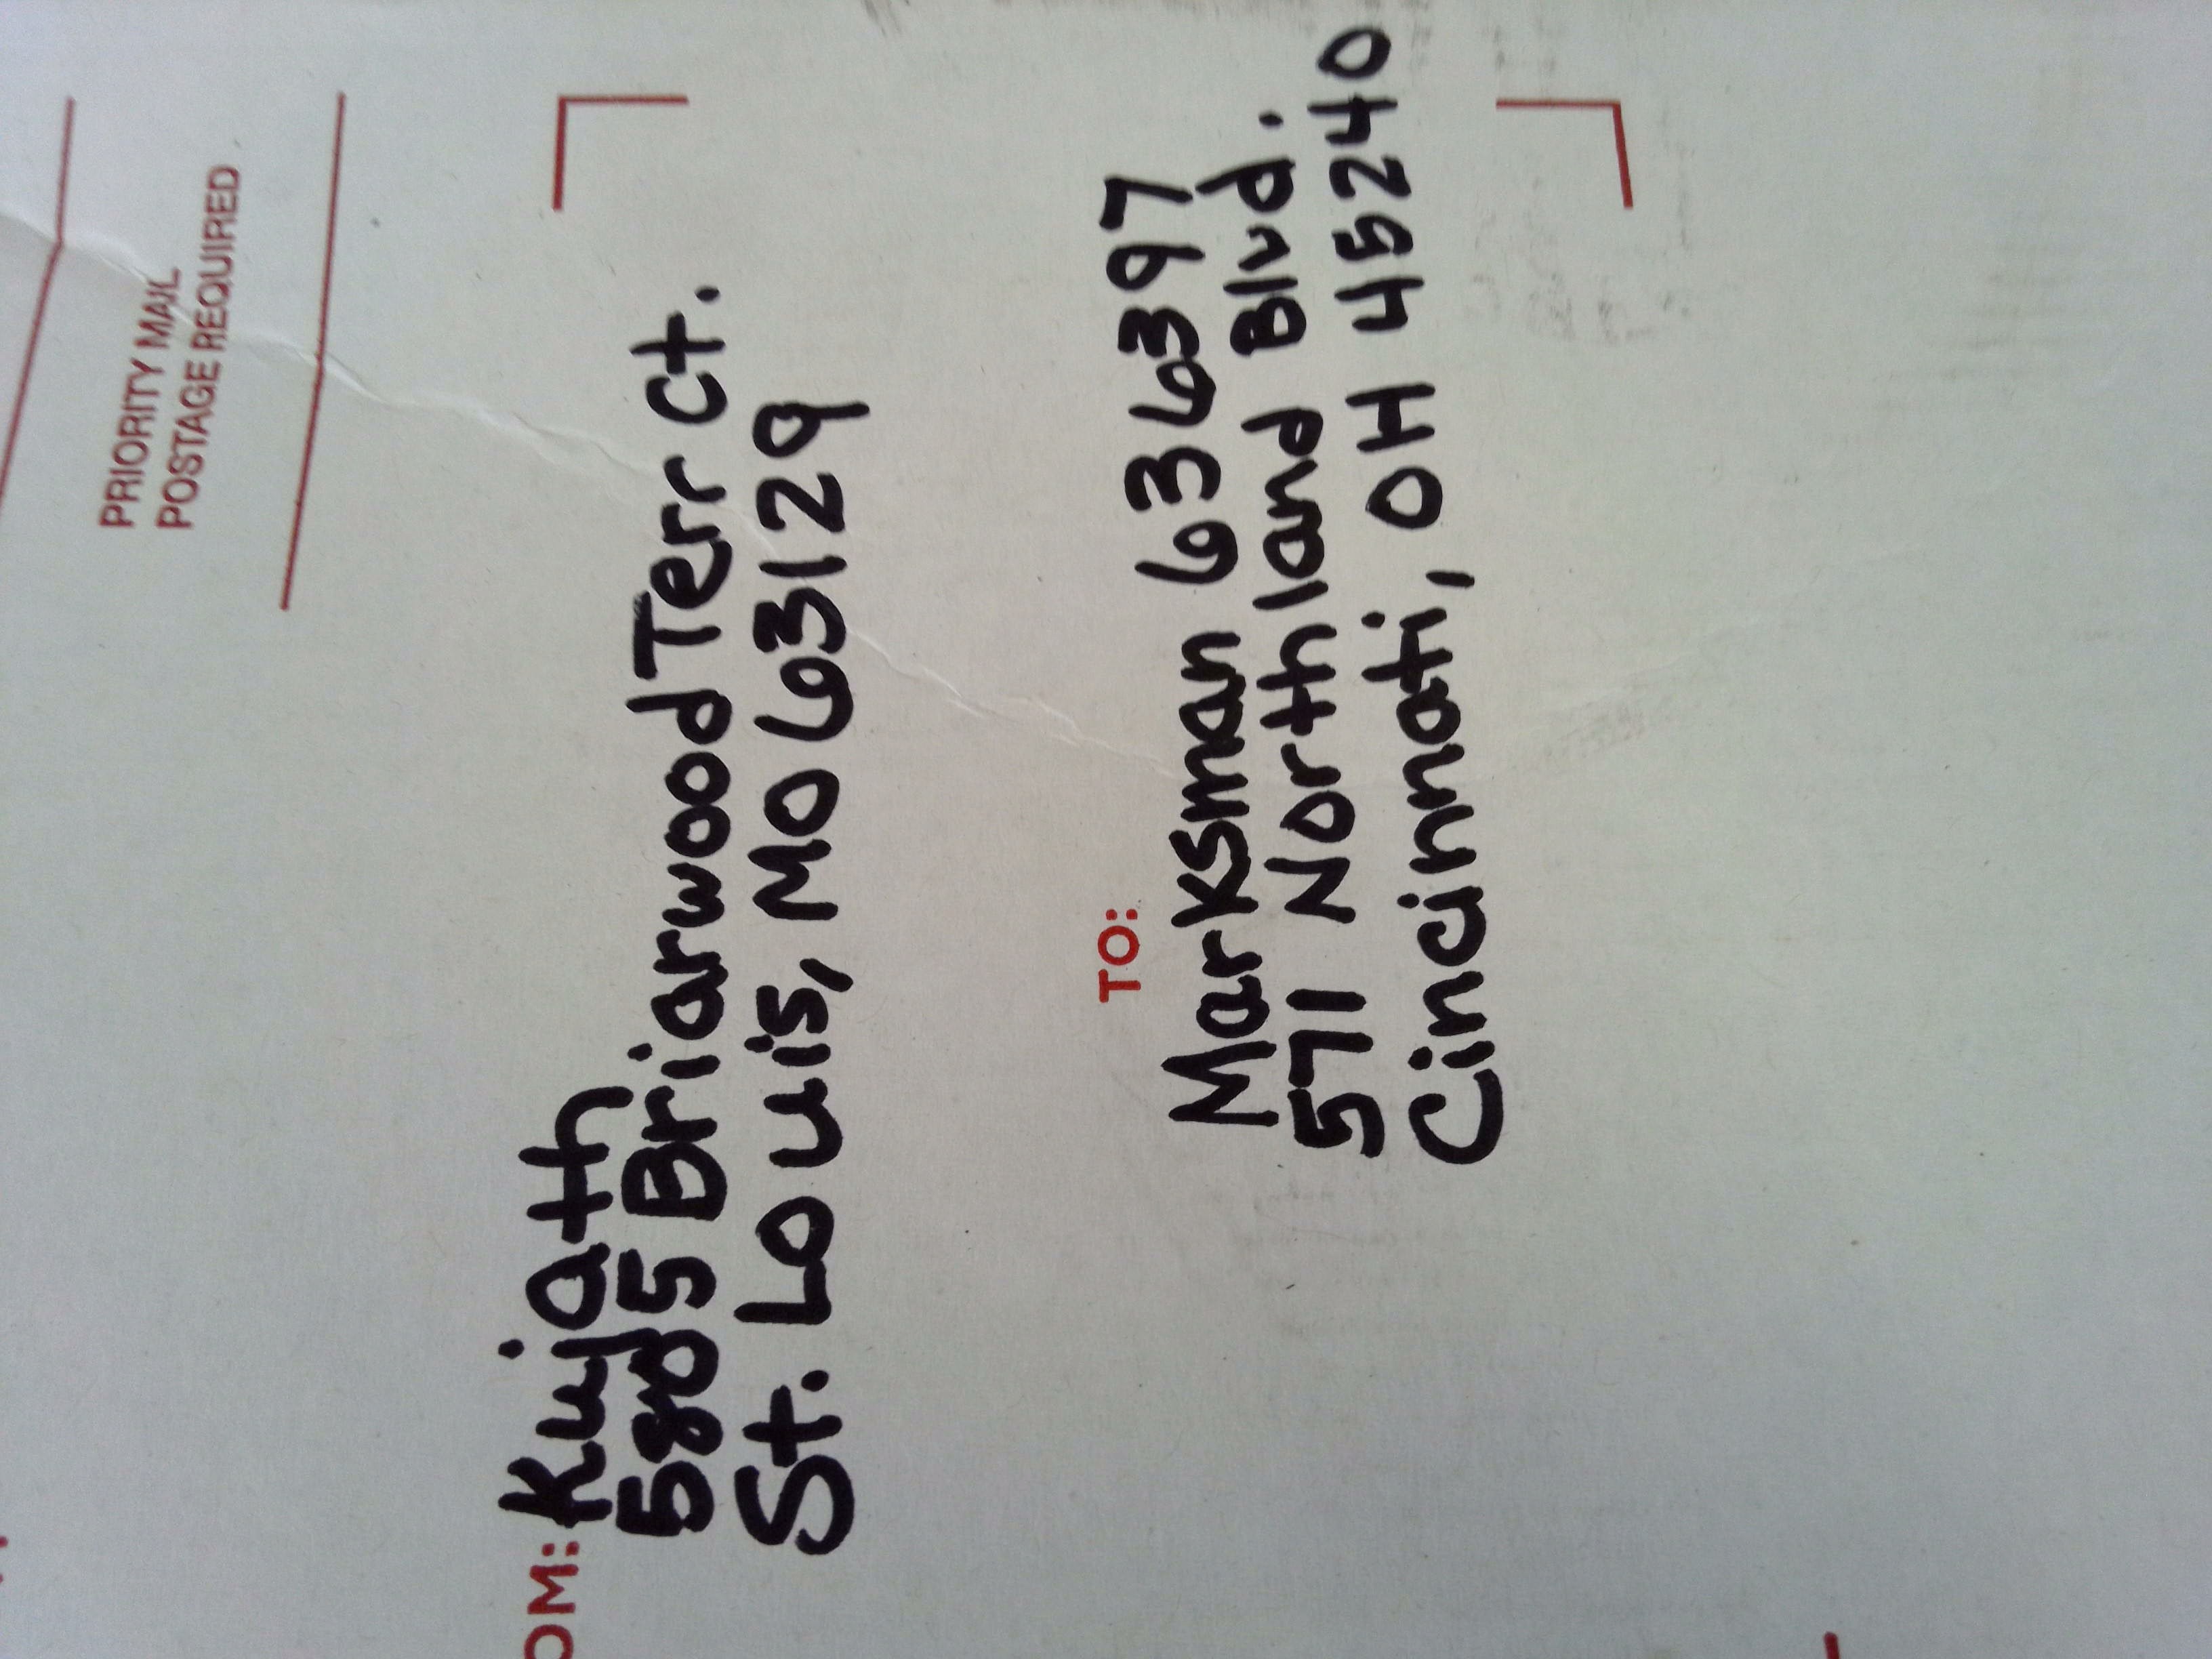 PRIORITY MAIL
POSTAGE REQUIRED
OM: Kujath
5805 Briarwood Terr Ct.
St. Louis, Mo 63129
TO:
Marksman 636397
571 Northland Blvd.
Cincinnati, OH 45240